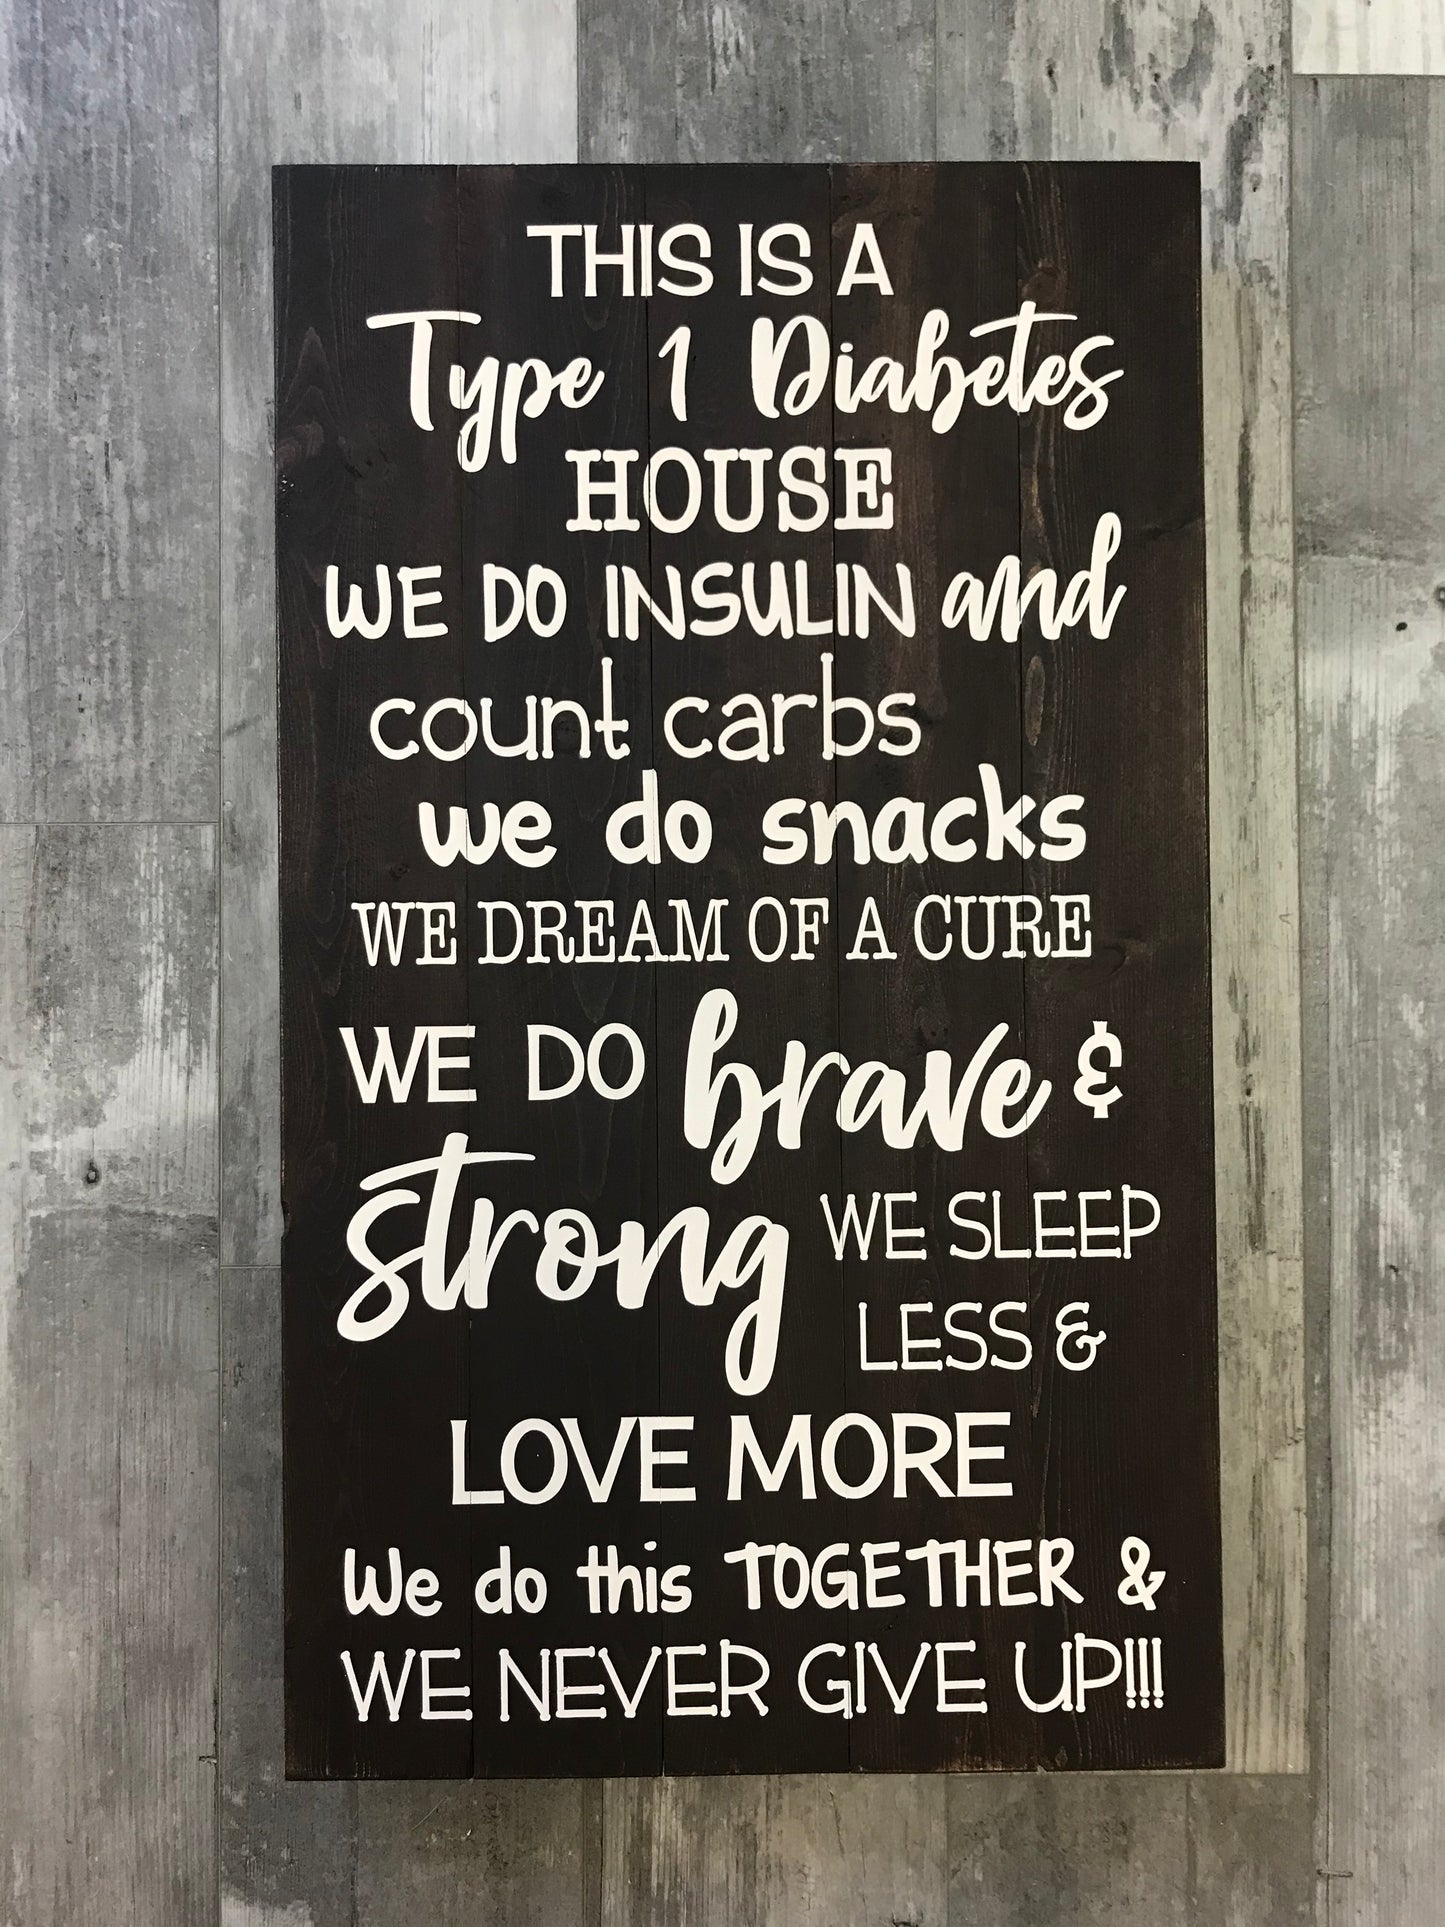 THIS IS A
Type 1 Diabetes
HOUSE
WE DO INSULIN and
count carbs
we do snacks
WE DREAM OF A CURE
WE DO brave &
strong WE SLEEP
LESS &
LOVE MORE
We do this TOGETHER &
WE NEVER GIVE UP!!!